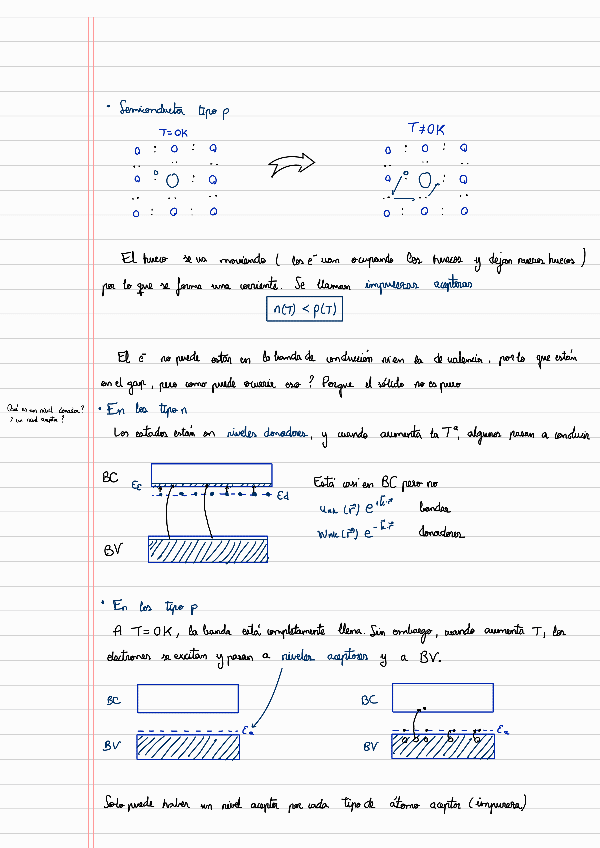 · Semiconductor tipo p
T=0K
T≠0K
El hueco se va moviendo ( los e⁻ van ocupando los huecos y dejan nuevos huecos )
por lo que se forma una corriente. Se llaman impurezas aceptoras
n(T) < p(T)
El e⁻ no puede están en la banda de conducción ni en la de valencia, por lo que están
en el gap, pero como puede ocurrir eso? Porque el sólido no es puro
Qué es un nivel donador?
¿ un nivel aceptor?
· En los tipo n
Los estados están en niveles donadores, y cuando aumenta la Tª, algunos pasan a conducir
BC
Ec
Ed
BV
Está casi en BC pero no
bandas
donadores
· En los tipo p
A T=0K, la banda está completamente llena. Sin embargo, cuando aumenta T, los
electrones se excitan y pasan a niveles aceptores y a BV.
BC
Ea
BV
BC
Ea
BV
Solo puede haber un nivel aceptor por cada tipo de átomo aceptor (impureza)